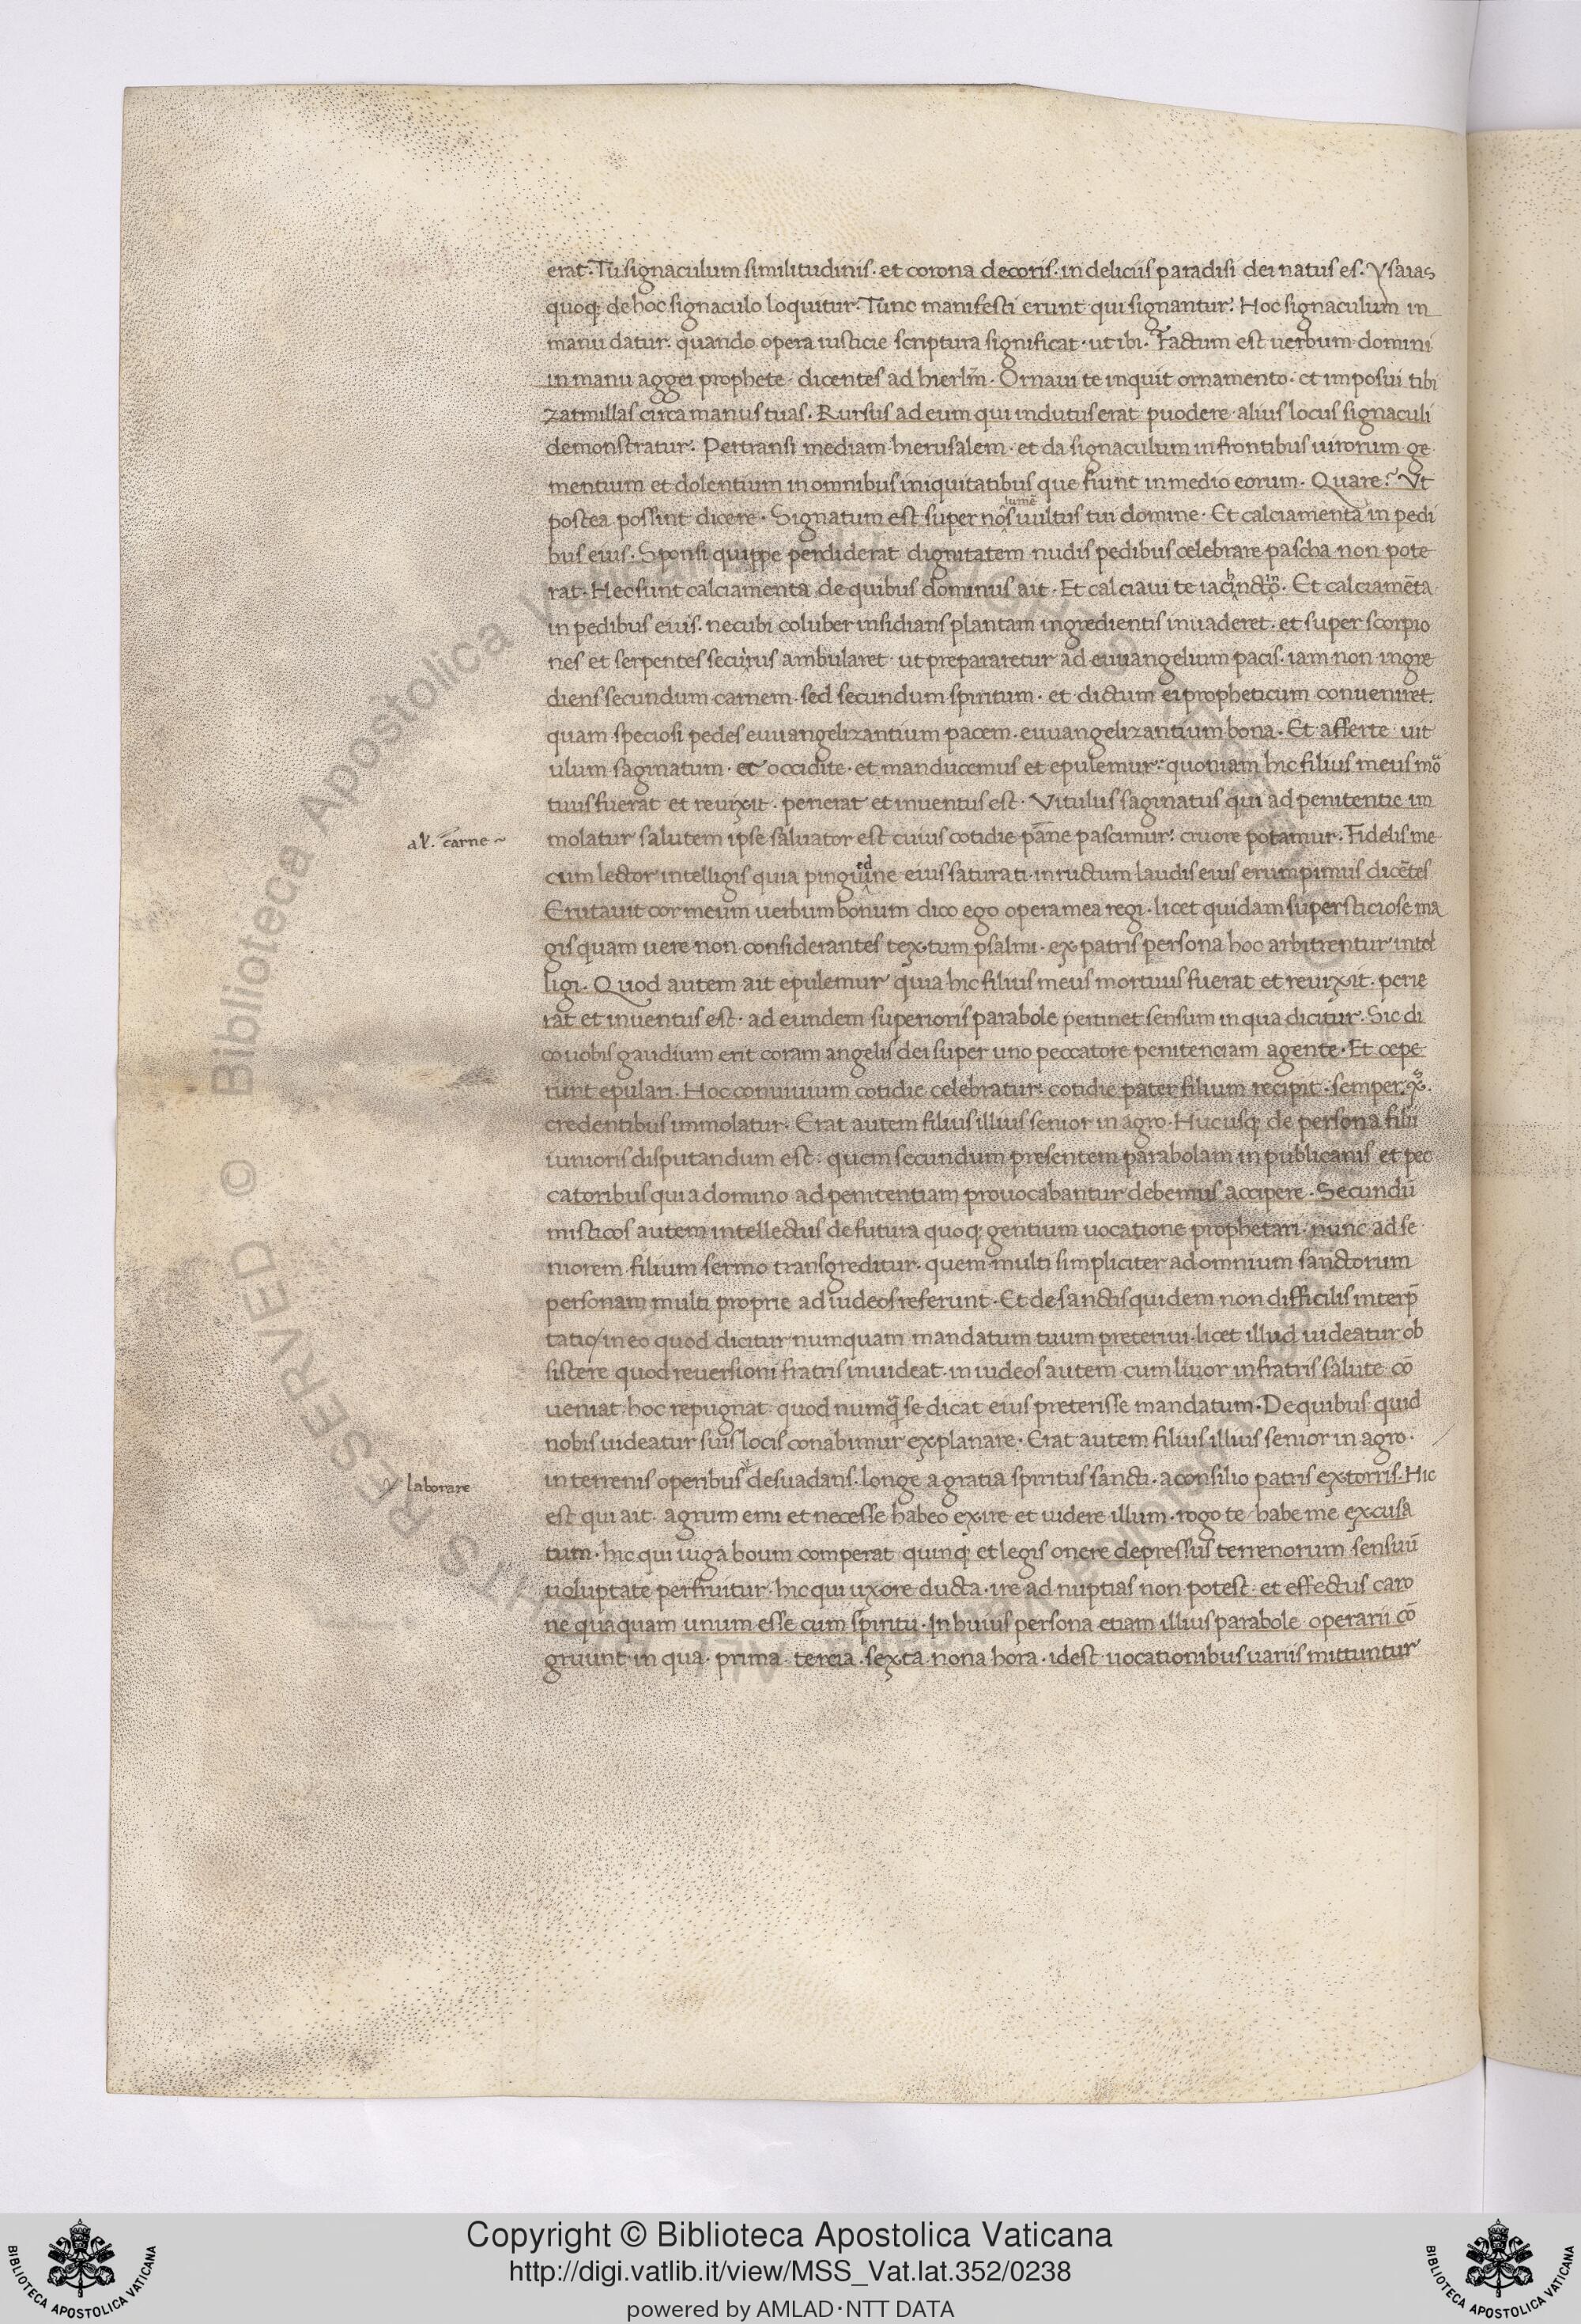 erat. Tu signaculum similitudinis. et corona decoris. in deliciis paradisi dei natus es. Ysaias
quoq; de hoc signaculo loquitur. Tunc manifesti erunt qui signantur. Hoc signaculum in
manu datur. quando opera iusticie scriptura significat. ut ibi. Factum est uerbum domini
in manu aggei prophete. dicentes ad hierlm̄. Ornaui te inquit ornamento. et imposui tibi
zarmillas circa manus tuas. Rursus ad eum qui indutus erat puodere alius locus signaculi
demonstratur. Pertransi mediam hierusalem. et da signaculum in frontibus uirorum ge
mentium et dolentium in omnibus iniquitatibus que fiunt in medio eorum. Quare? Ut
postea possint dicere. Signatum est super nōs lumē uultus tui domine. Et calciamenta in pedi
bus eius. Sponsi quippe perdiderat dignitatem nudis pedibus celebrare pascha non pote
rat. Hec sunt calciamenta de quibus dominus ait. Et calciaui te iacinctō. Et calciamēta
in pedibus eius. necubi coluber insidians plantam ingredientis inuaderet. et super scorpio
nes et serpentes securus ambularet. ut prepararetur ad euuangelium pacis. iam non ingre
diens secundum carnem. sed secundum spiritum. et dictum ei propheticum conueniret.
quam speciosi pedes euuangelizantium pacem. euuangelizantium bona. Et afferte uit
ulum saginatum. et occidite. et manducemus et epulemur. quoniam hic filius meus mor
tuus fuerat et reuixit. perierat et inuentus est. Vitulus saginatus qui ad penitentie im
al. carne
molatur salutem ipse saluator est cuius cotidie pane pascimur. cruore potamur. Fidelis me
cum lector intelligis quia pinguedine eius saturati. in ructum laudis eius erumpimus dicētes
Erutauit cor meum uerbum bonum dico ego opera mea regi. licet quidam supersticiose ma
gis quam uere non considerantes textum psalmi. ex patris persona hoc arbitrentur intel
ligi. Quod autem ait epulemur quia hic filius meus mortuus fuerat et reuixit. perie
rat et inuentus est. ad eundem superioris parabole pertinet sensum in qua dicitur. Sic di
co uobis gaudium erit coram angelis dei super uno peccatore penitenciam agente. Et cepe
runt epulari. Hoc conuiuium cotidie celebratur. cotidie pater filium recipit. semper
credentibus immolatur. Erat autem filius illius senior in agro. Hucusq; de persona filii
iunioris disputandum est. quem secundum presentem parabolam in publicanis et pec
catoribus qui a domino ad penitentiam prouocabantur debemus accipere. Secundū
misticos autem intellectus de futura quoq; gentium uocatione prophetari. nunc ad se
niorem filium sermo transgreditur. quem multi simpliciter ad omnium sanctorum
personam multi proprie ad iudeos referunt. Et de sanctis quidem non difficilis interp̄
tatio/in eo quod dicitur numquam mandatum tuum preteriui. licet illud uideatur ob
sistere quod reuersioni fratris inuideat. in iudeos autem cum liuor in fratris salute cō
ueniat. hoc repugnat quod numq̄ se dicat eius preterisse mandatum. De quibus quid
nobis uideatur suis locis conabimur explanare. Erat autem filius illius senior in agro.
laborare
in terrenis operibus desuadans. longe a gratia spiritus sancti. a consilio patris extorris. Hic
est qui ait. agrum emi et necesse habeo exire et uidere illum. rogo te habe me excusa
tum. hic qui iuga boum comperat quinq; et legis onere depressus terrenorum sensuū
uoluptate perfruitur. hic qui uxore ducta. ire ad nuptias non potest. et effectus caro
ne quaquam unum esse cum spiritu. In huius persona etiam illius parabole operarii cō
gruunt in qua. prima. tercia. sexta. nona hora. idest uocationibus uariis mittuntur
© Biblioteca Apostolica Vaticana
ALL RIGHTS RESERVED
BIBLIOTECA APOSTOLICA VATICANA
Copyright © Biblioteca Apostolica Vaticana
http://digi.vatlib.it/view/MSS_Vat.lat.352/0238
powered by AMLAD·NTT DATA
BIBLIOTECA APOSTOLICA VATICANA